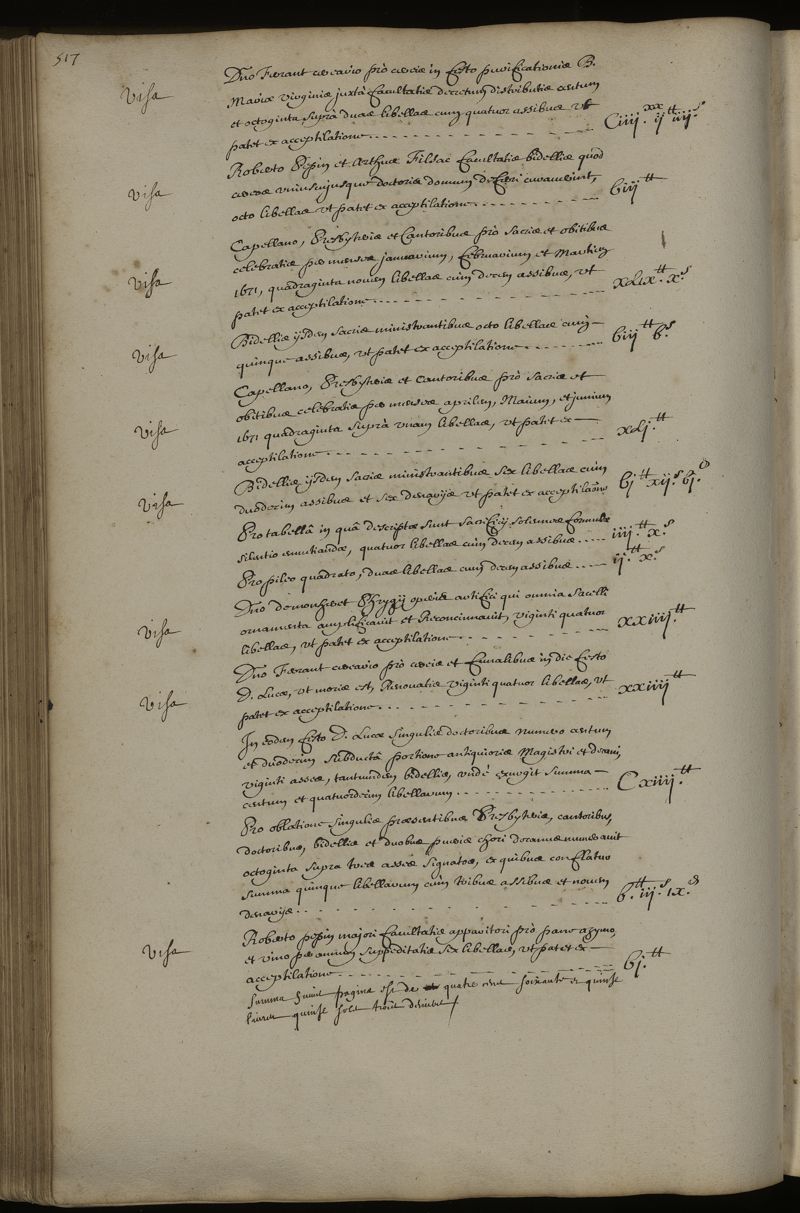 517
Visa
Dno Ferant cereario pro cereis in festo purificationis B.
Mariæ virginis juxta facultatis decretum distributis centum
et octoginta supra duas libellas cum quatuor assibus vt
patet ex acceptilatione. Ciiij.xx ij.tt iiij.s
Visa
Roberto Pepin et Arthus Filsac facultatis bidellis quod
cereos vniuscujusque doctoris domum deferri curaverint,
octo libellas vt patet ex acceptilatione. viij.tt
Visa
Capellano, Presbyteris et Cantoribus pro sacris et obitibus
celebratis per menses januarium, februarium et Martium
1671, quadraginta novem libellas cum decem assibus, vt
patet ex acceptilatione. xLix.tt x.s
Visa
Bidellis ijsdem sacris ministrantibus octo libellas cum
quinque assibus, vt patet ex acceptilatione. viij.tt v.s
Visa
Capellano, Presbyteris et cantoribus pro sacris et
obitibus celebratis per menses aprilem, Maium, et junium
1671 quadraginta supra vnam libellas, vt patet ex
acceptilatione. xLj.tt
Visa
Bidellis ijsdem sacris ministrantibus sex libellas cum
duodecim assibus et sex denarijs vt patet ex acceptilatione vj.tt xij.s vj.d
Pro tabellâ in quâ descriptæ sunt sacrificij solemnes formulæ
silentio enuntiandæ, quatuor libellas cum decem assibus. iiij.tt x.s
Pro pileo quadrato, duas libellas cum decem assibus. ij.tt x.s
Visa
Dno demonheret Phrygij operis artifici qui omnia sacelli
ornamenta amplificavit et Reconcinnavit, viginti quatuor
libellas, vt patet ex acceptilatione. xxiiij.tt
Visa
Dno Ferant cereario pro cereis et funalibus in die festo
D. Lucæ, vt moris est, Renovatis viginti quatuor libellas, vt
patet ex acceptilatione. xxiiij.tt
In eodem festo D. Lucæ singulis doctoribus numero centum
et duodecim subductâ portione antiquioris Magistri et decani,
viginti asses, tantumdem bidellis, vndè exurgit summa
centum et quatuordecim libellarum. Cxiiij.tt
Pro oblatione singulis præsentibus Presbyteris, cantoribus,
doctoribus, bidellis et duobus pueris chori decanus numeravit
octoginta supra tres asses signatos, ex quibus conflatur
summa quinque libellarum cum tribus assibus et novem
denarijs. v.tt iij.s ix.d
Visa
Roberto pepin majori facultatis apparitori pro pane azymo,
et vino per annum suppeditatis sex libellas, vt patet ex
acceptilatione. vj.tt
Summa pagina est de quatre cens soixante et quinse
livres quinse sols trois deniers